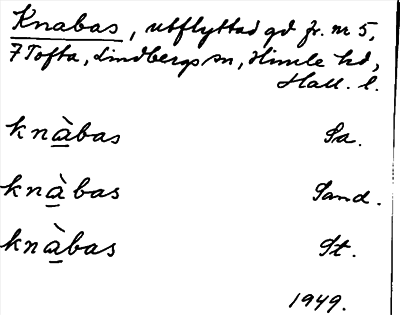 Knabas, utflyttad gd fr. nr 5,
7 Tofta, Lindbergs sn, Himle hd,
Hall. l.
knàbas Sa.
knàbas Sand.
knàbas St.
1949.